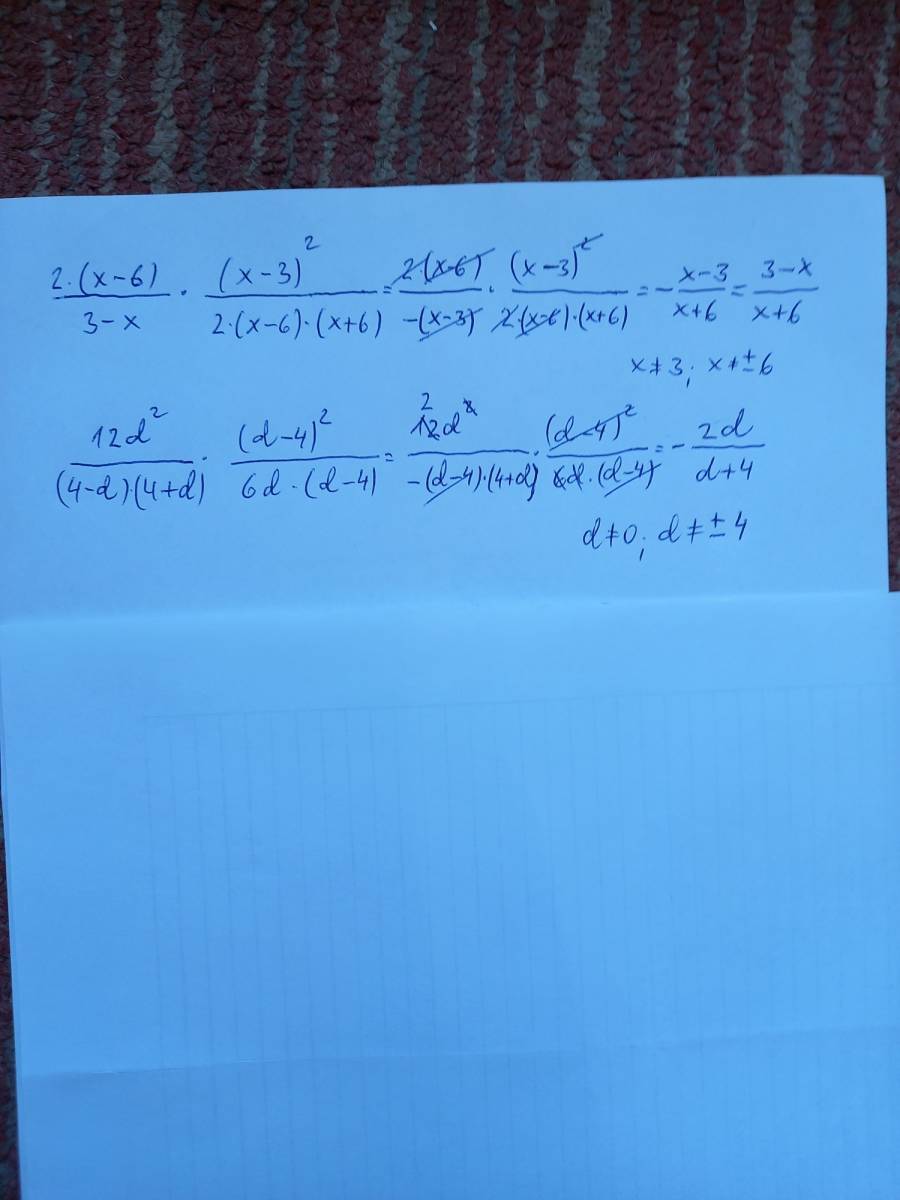 2·(x-6)/3-x · (x-3)²/2·(x-6)·(x+6) = 2·(x-6)/-(x-3) · (x-3)²/2·(x-6)·(x+6) = -x-3/x+6 = 3-x/x+6
x≠3; x≠±6
12d²/(4-d)·(4+d) · (d-4)²/6d·(d-4) = 2 12d²/-(d-4)·(4+d) · (d-4)²/6d·(d-4) = -2d/d+4
d≠0; d≠±4